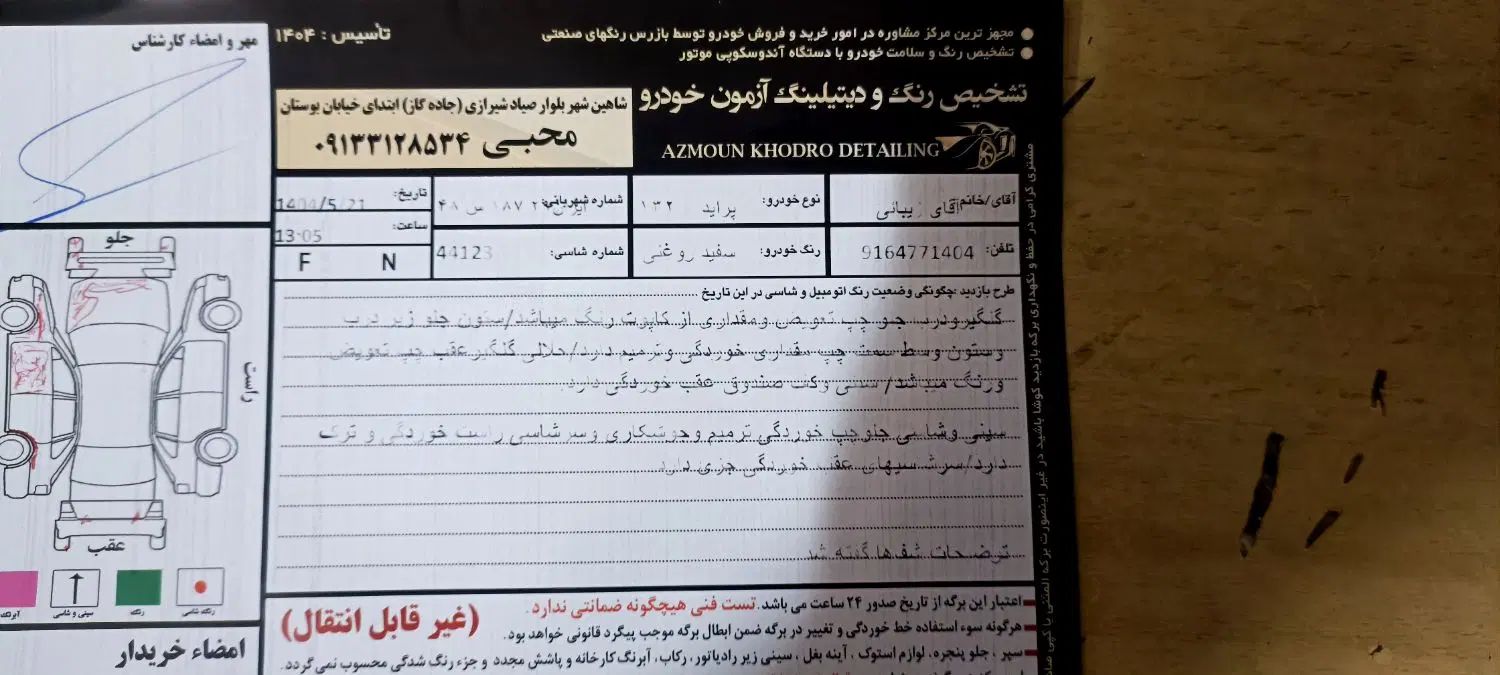 مجهز ترین مرکز مشاوره در امور خرید و فروش خودرو توسط بازرس رنگهای صنعتی
تشخیص رنگ و سلامت خودرو با دستگاه آندوسکوپی موتور
تأسیس : ۱۴۰۴
تشخیص رنگ و دیتیلینگ آزمون خودرو
AZMOUN KHODRO DETAILING
شاهین شهر بلوار صیاد شیرازی (جاده گاز) ابتدای خیابان بوستان
محبی ۰۹۱۳۳۱۲۸۵۳۴
مهر و امضاء کارشناس
آقای/خانم آقای زیبائی
نوع خودرو: پراید ۱۳۲
شماره شهربانی: ایران ۲ ۱۸۷ س ۴۸
تاریخ: 1404/5/21
ساعت: 13:05
تلفن: 9164771404
رنگ خودرو: سفید روغنی
شماره شاسی: 44123
F N
طرح بازدید :چگونگی وضعیت رنگ اتومبیل و شاسی در این تاریخ
گلگیرودرب جلو چپ تعویض ومقداری از کاپوت رنگ میباشد/ستون جلو زیر درب
وستون وسط سمت چپ مقداری خوردگی وترمیم دارد/دلالی گلگیر عقب چپ تعویض
ورنگ میباشد/سینی وکف صندوق عقب خوردگی دارد.
سینی وشاسی جلوچپ خوردگی ترمیم وجوشکاری وسرشاسی راست خوردگی و ترک
دارد/سرشاسیهای عقب خوردگی جزی دارد.
توضیحات شفاها گفته شد
جلو
راست
عقب
رنگ شاسی
رنگ
سینی و شاسی
آبرنگ
امضاء خریدار
اعتبار این برگه از تاریخ صدور ۲۴ ساعت می باشد. تست فنی هیچگونه ضمانتی ندارد.
(غیر قابل انتقال)
هرگونه سوء استفاده خط خوردگی و تغییر در برگه ضمن ابطال برگه موجب پیگرد قانونی خواهد بود.
سپر ، جلو پنجره، لوازم استوک ، آینه بغل ، سینی زیر رادیاتور، رکاب، آبرنگ کارخانه و پاشش مجدد و جزء رنگ شدگی محسوب نمی گردد.
مشتری گرامی در حفظ و نگهداری برگه بازدید کوشا باشید در غیر اینصورت برگه المثنی یا کپی